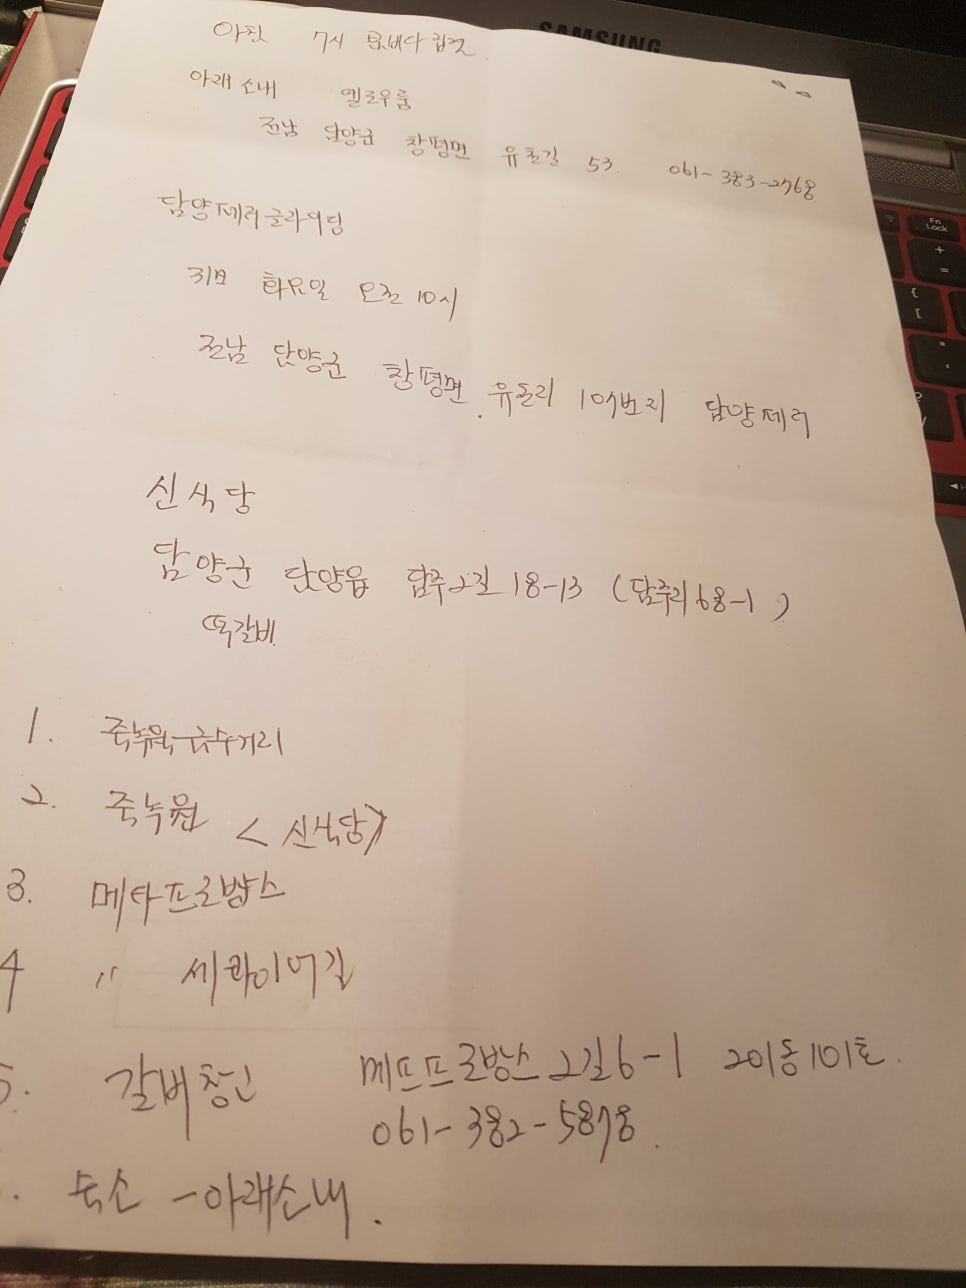 SAMSUNG
아침 7시
아래소내 옐로우룸
전남 담양군 창평면 유촌길 53. 061-383-2768
담양패러글라이딩
31일 화요일 오전 10시
전남 담양군 창평면 유돌리 담양패러
신식당
담양군 담양읍 담주2길 18-13 (담주리 68-1)
떡갈비
1. 죽녹원 국수거리
2. 죽녹원 <신식당>
3. 메타프로방스
4 〃 세콰이어길
5. 갈비창고 메타프로방스 2길 6-1 201동 101호.
061-382-5878.
. 숙소 - 아래소내.
Fn
Lock